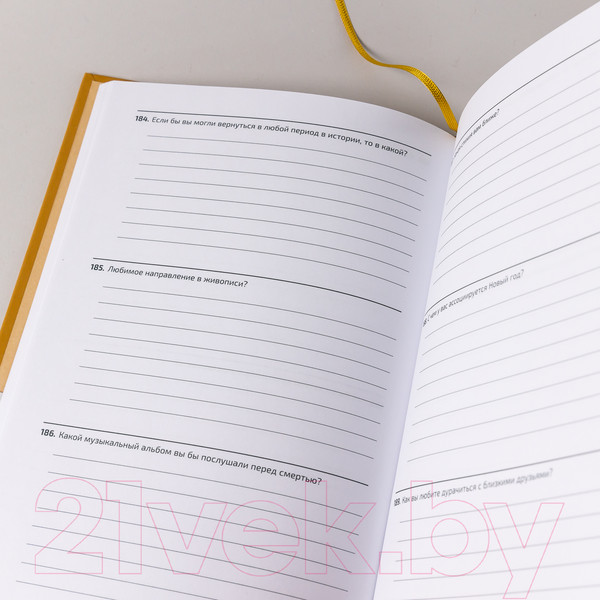 184. Если бы вы могли вернуться в любой период в истории, то в какой?
185. Любимое направление в живописи?
186. Какой музыкальный альбом вы бы послушали перед смертью?
вам ближе?
С чем у вас ассоциируется Новый год?
Как вы любите дурачиться с близкими друзьями?
21vek.by